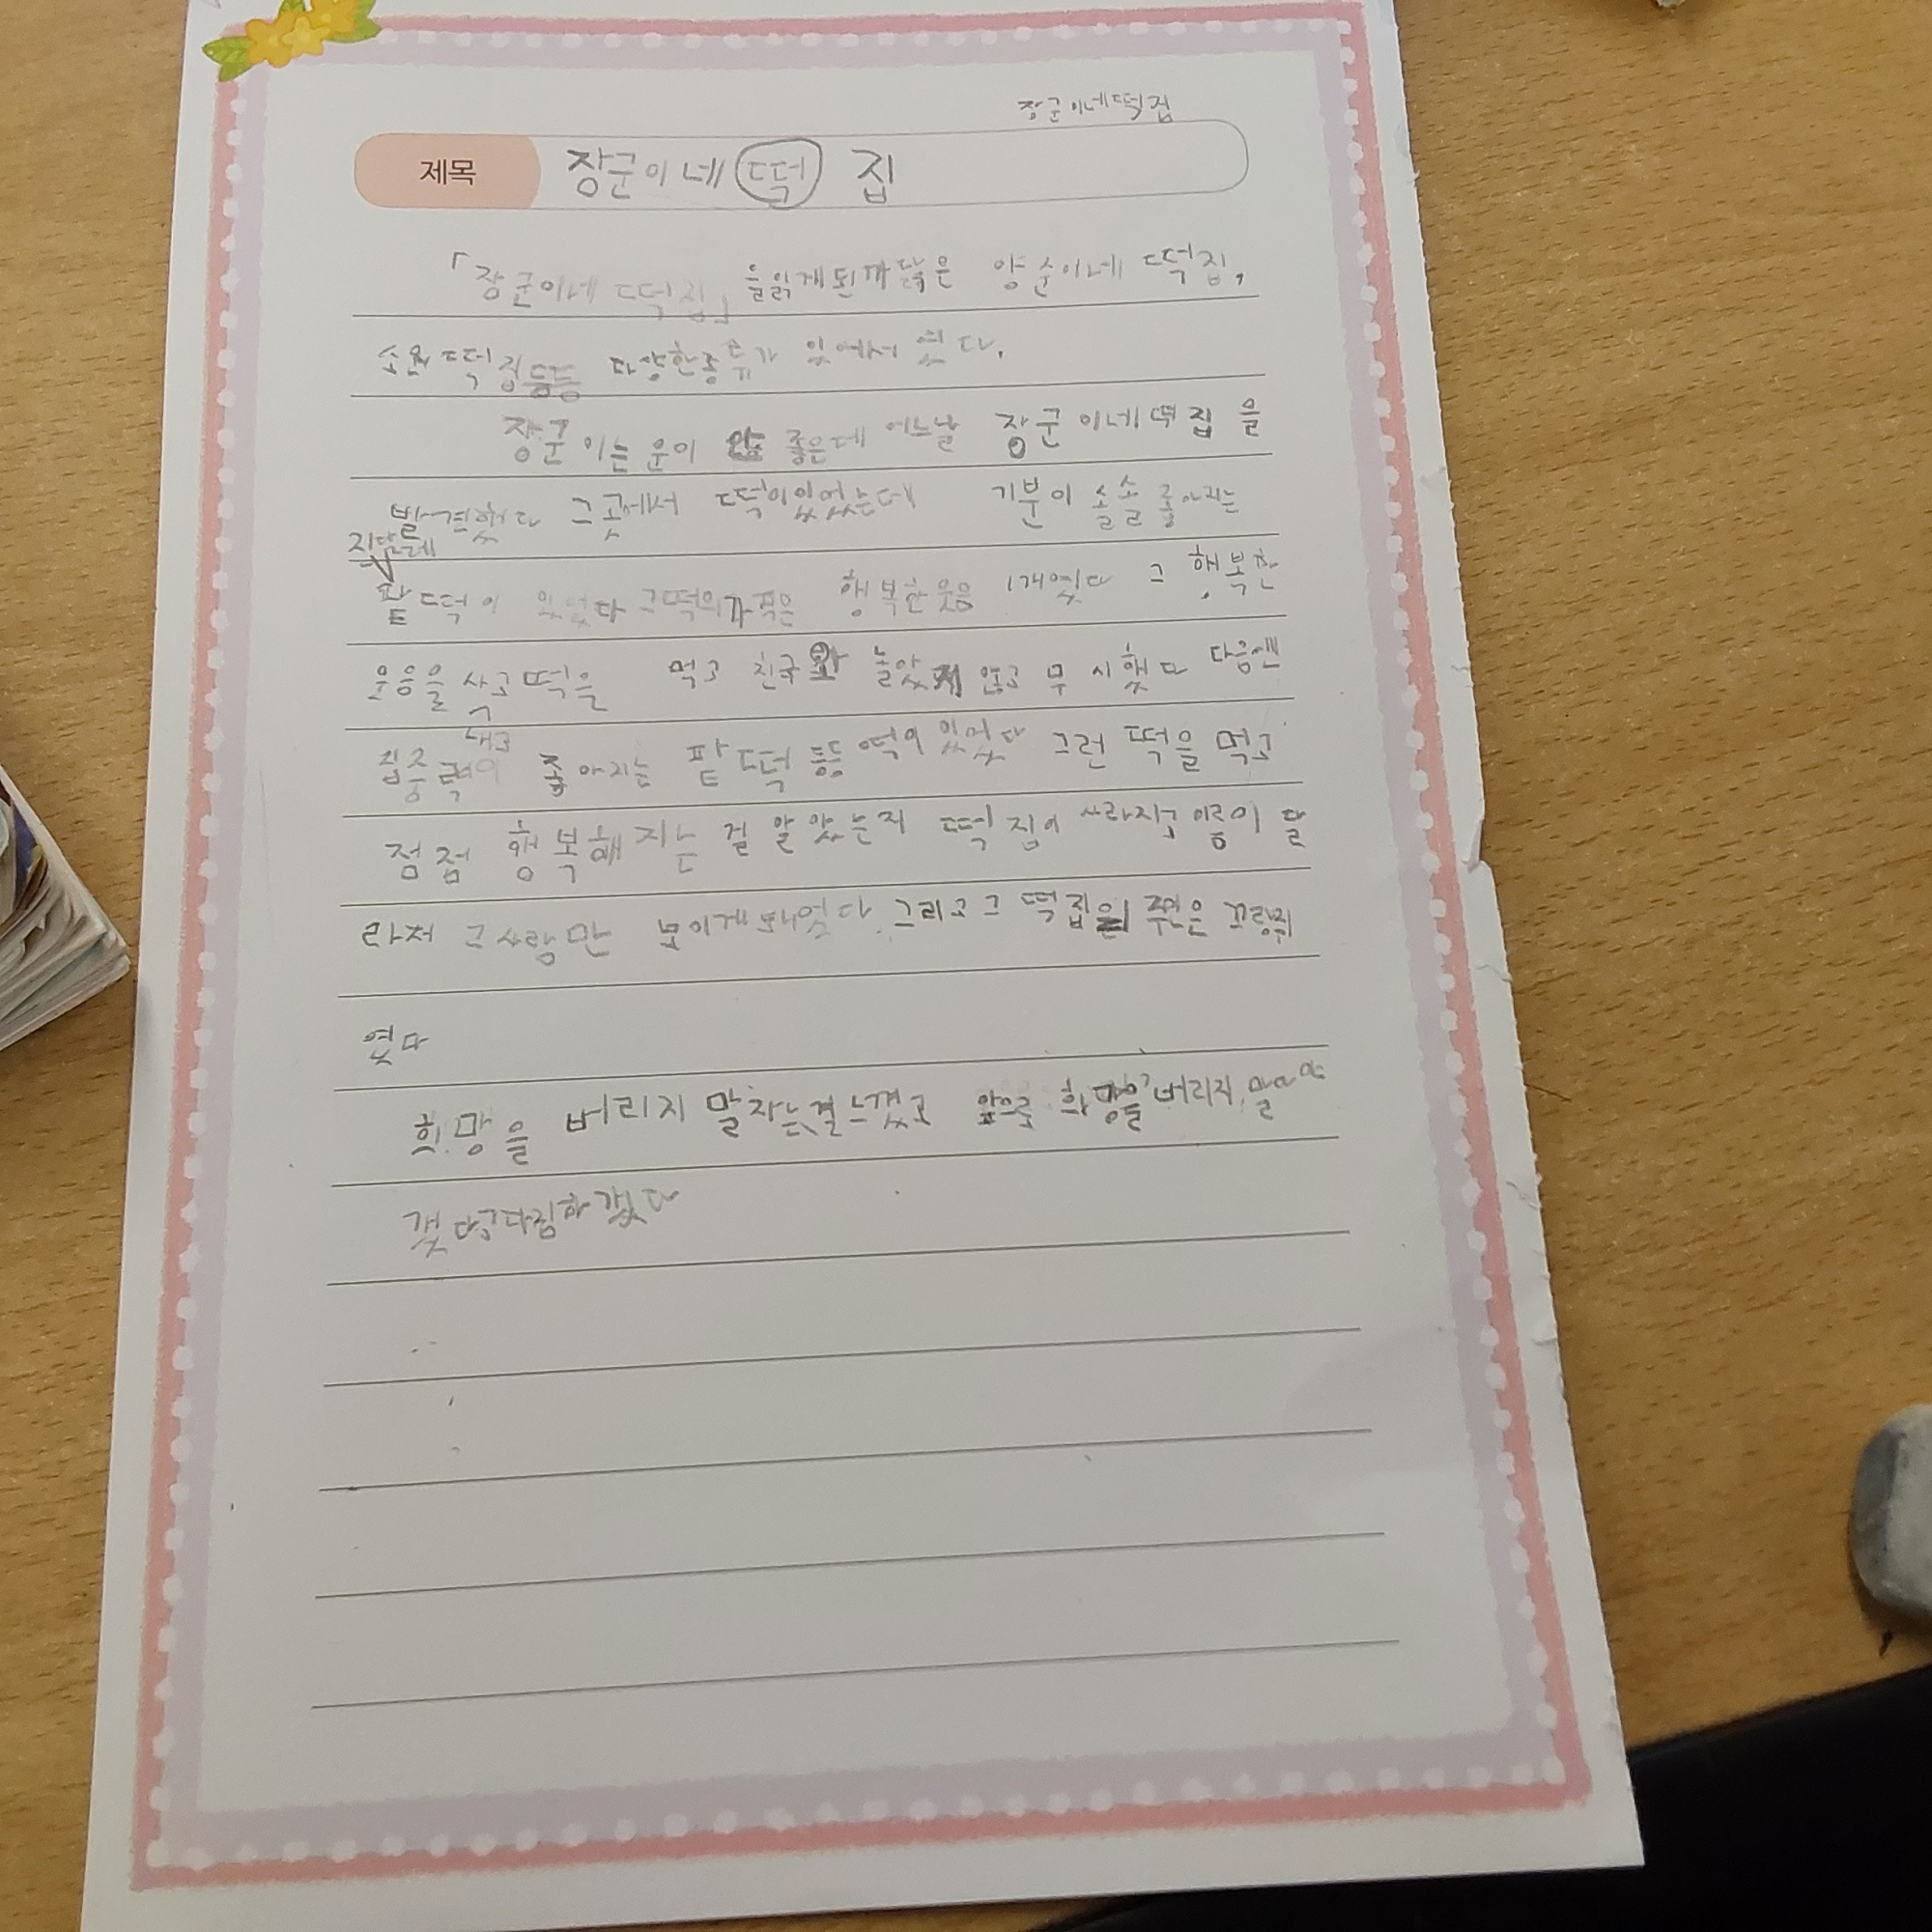 장군이네떡집
제목 장군이네 떡 집
「장군이네 떡집」을읽게된 은 양순이네 떡집,
소원떡집등등 다양한종류가 있에서 였다.
장군이는 운이 안 좋은데 어느날 장군이네떡집을
발견했다 그곳에서 떡이있었는데 기분이 솔솔 좋아지는
팥떡이 있었다 그떡의가격은 행복한웃음 1개였다 그 행복한
웃음을 떡을 먹고 친구와 놀았지 않고 무시했다 다음엔
집중력이 좋아지는 팥떡 등등 떡이 있었다 그런 떡을 먹고
점점 행복해지는 걸 알았는지 떡집이 사라지고 이름이 달
라져 그사람만 보이게되었다. 그리고 그 떡집의 주인은 꼬랑쥐
였다
희망을 버리지 말자는걸느꼈고 앞으로 희망을 버리지 말아야
겠다고다짐하겠다